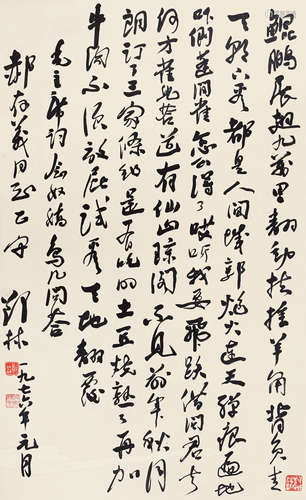 鲲鹏展翅九万里翻动扶摇羊角背负青
天朝下看都是人间城郭炮火连天弹痕遍地
吓倒蓬间雀怎么得了哎呀我要飞跃借问君去
何方雀儿答道有仙山琼阁不见前年秋月
朗订了三家条约还有吃的土豆烧熟了再加
牛肉不须放屁试看天地翻覆
毛主席词念奴娇鸟儿问答
郝存义同志正字
一九七六年元月